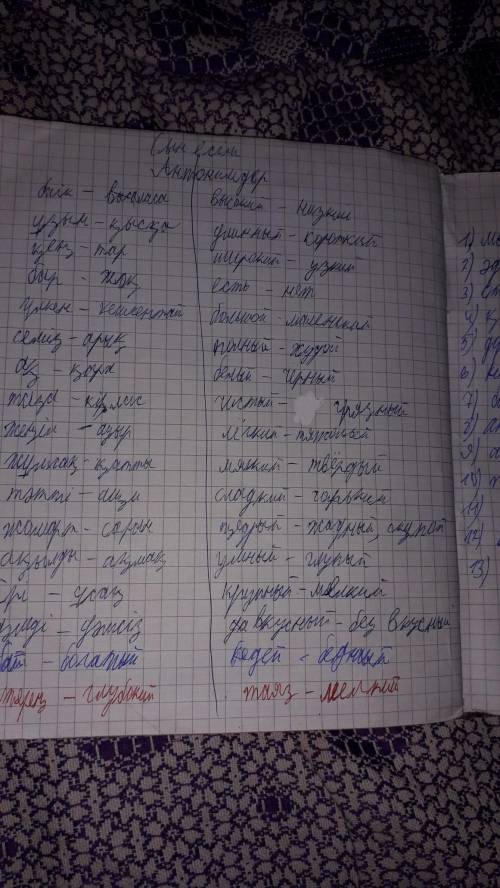 Сын есім
Антонимдер
биік – высокий – низкий
ұзын – қысқа длинный – короткий
кең – тар широкий – узкий
бар – жоқ есть – нет
үлкен – большой – маленький
семіз – арық полный – худой
ақ – қара белый – чёрный
таза – чистый – грязный
жеңіл – ауыр лёгкий – тяжёлый
жұмсақ – қатты мягкий – твёрдый
тәтті – ащы сладкий – горький
жомарт – сараң щедрый – жадный, скупой
ақылды – ақмақ умный – глупый
ірі – ұсақ крупный – мелкий
дәмді – дәмсіз вкусный – без вкусный
бай – богатый кедей – бедный
терең – глубокий таяз – мелкий
1)
2)
3)
4)
5)
6)
7)
8)
9)
10)
11)
12)
13)